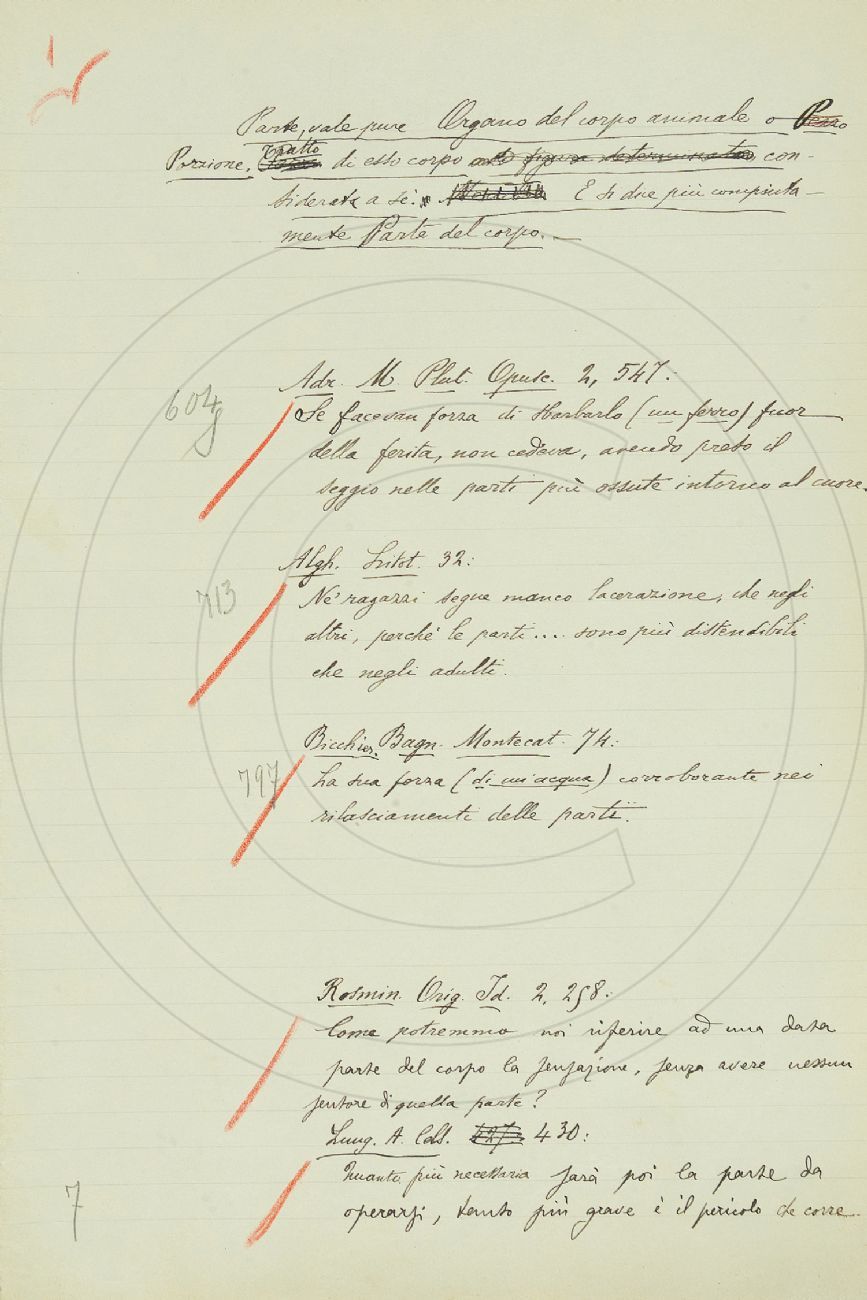 Parte, vale pure Organo del corpo animale o Pezzo
Porzione, Tratto di esso corpo con-
siderata a sè. E si dice più compiuta-
mente Parte del corpo.
Adr. M. Plut. Opusc. 2, 547:
604
Se facevan forza di sbarbarlo (un ferro) fuor
della ferita, non cedeva, avendo preso il
seggio nelle parti più ossute intorno al cuore.
Algh. Litot. 32:
713
Ne' ragazzi segue manco lacerazione, che negli
altri, perchè le parti .... sono più distendibili
che negli adulti.
Bicchier. Bagn. Montecat. 74:
797
La sua forza (di un'acqua) corroborante nei
rilasciamenti delle parti.
Rosmin. Orig. Id. 2, 258:
Come potremmo noi riferire ad una data
parte del corpo la sensazione, senza avere nessun
sentore di quella parte?
427. 430:
Quanto più necessaria sarà poi la parte da
7
operarsi, tanto più grave è il pericolo che corre